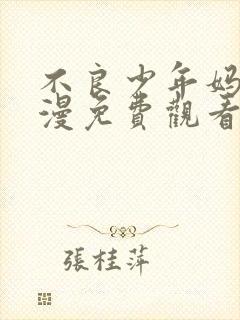 不良少年妈
漫免費觀看
張桂萍